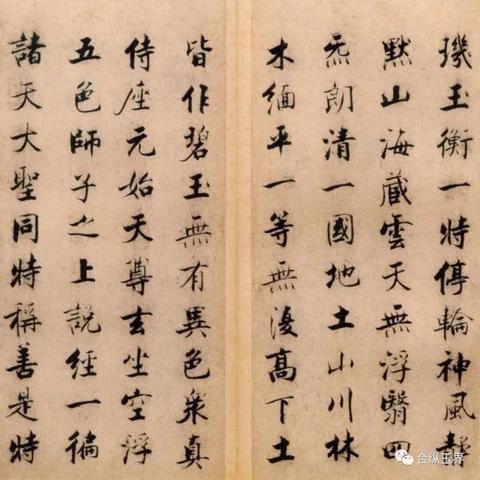 璣玉衡一時停輪神風靜
默山海藏雲天無浮翳四
炁朗清一國地土山川林
木緬平一等無復高下土
皆作碧玉無有異色眾真
侍座元始天尊玄坐空浮
五色師子之上說經一徧
諸天大聖同時稱善是時
合纵玉界